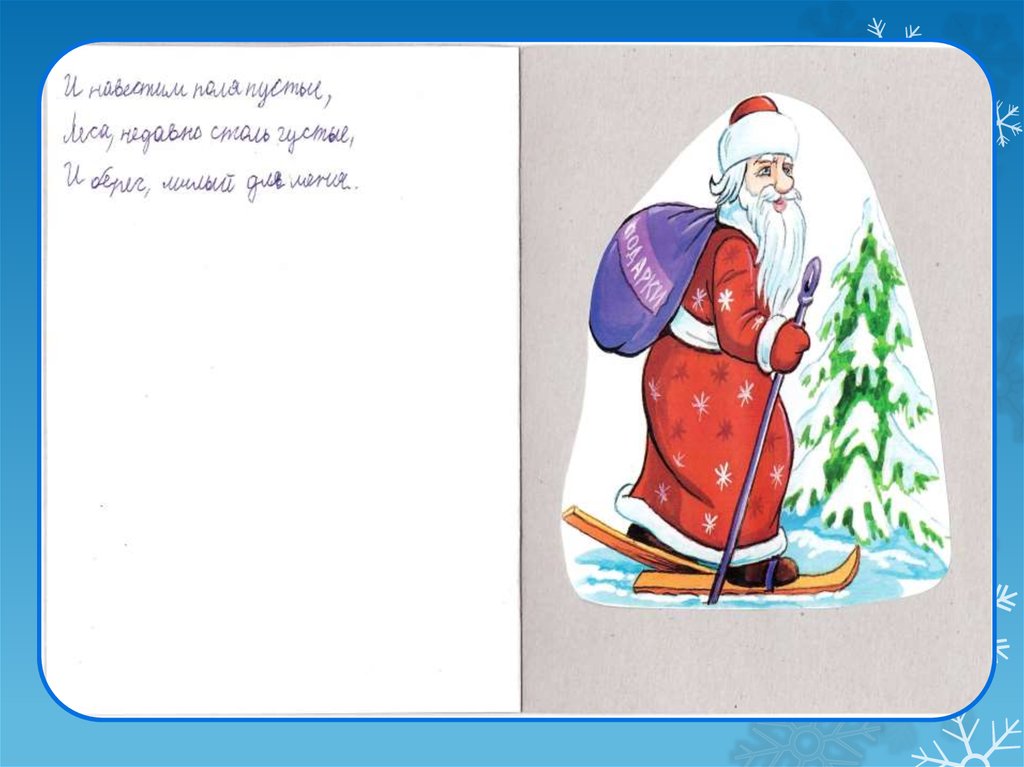 И навестим поля пустые,
Леса, недавно столь густые,
И берег, милый для меня.
ПОДАРКИ